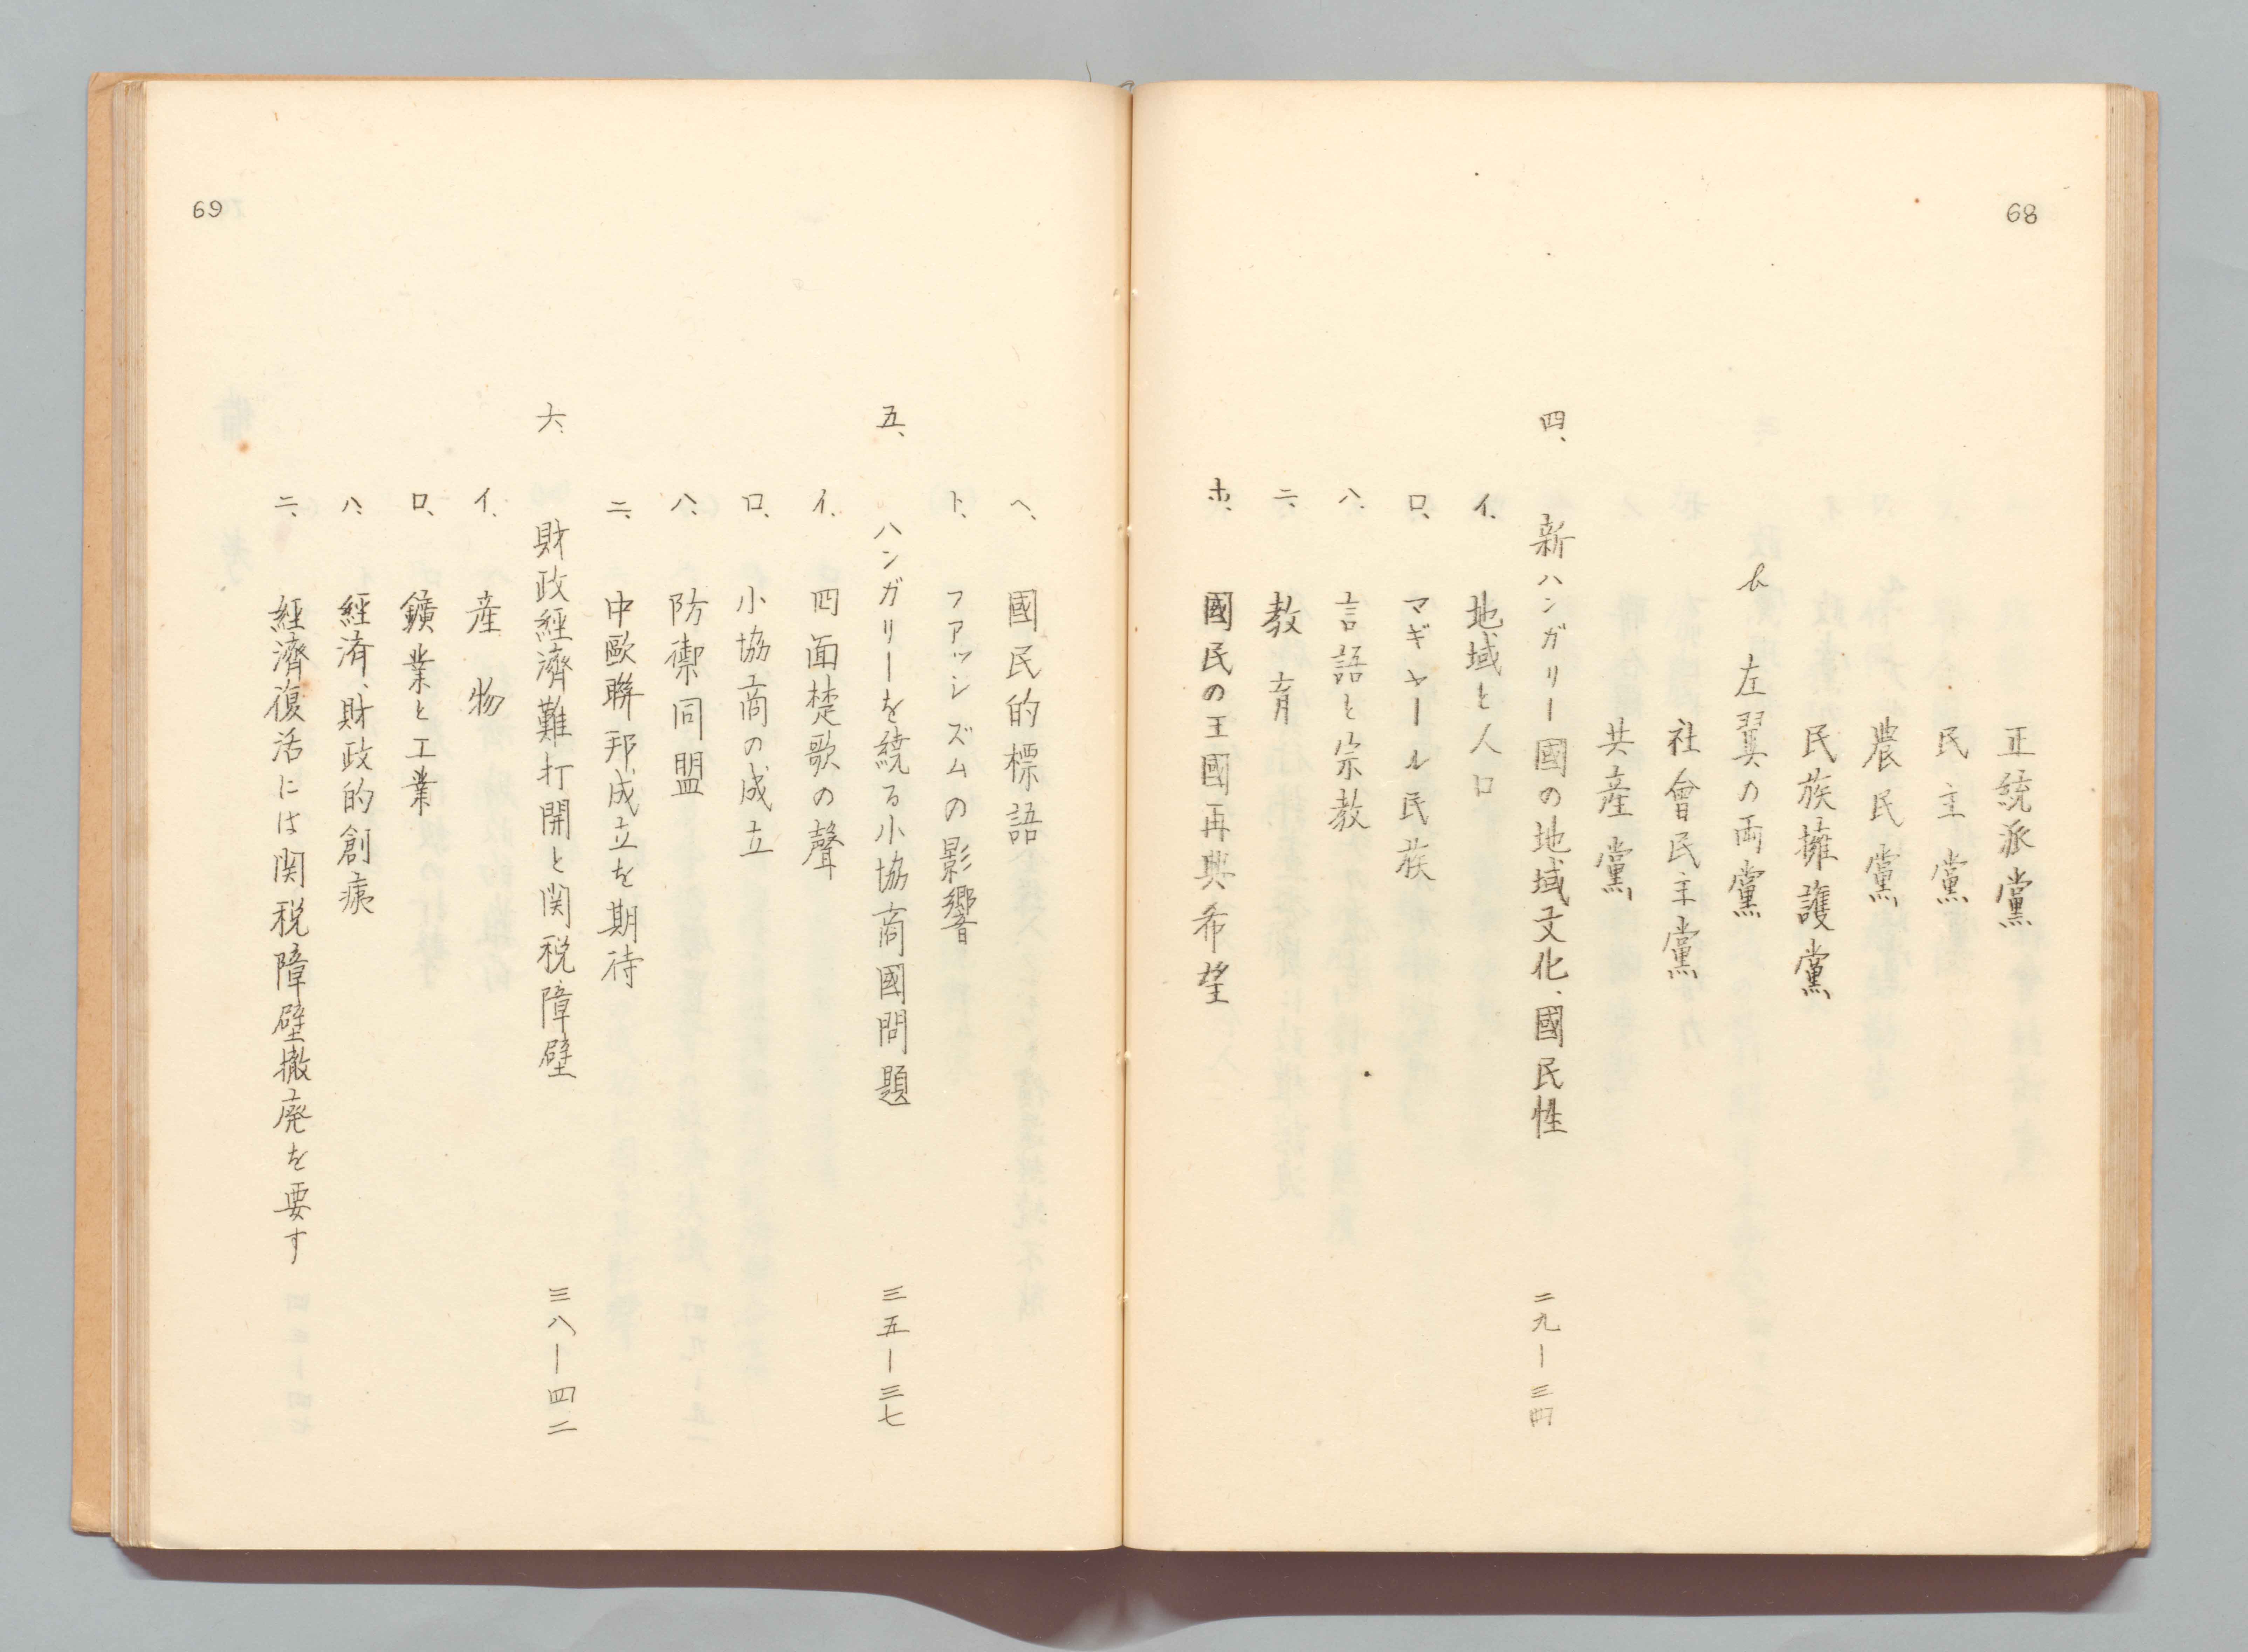 68
正統派黨
民主黨
農民黨
民族擁護黨
b 左翼の両黨
社會民主黨
共産黨
四、 新ハンガリー國の地域文化、國民性 二九ー三四
イ、 地域と人口
ロ、 マギャール民族
ハ、 言語と宗教
ニ、 教育
ホ、 國民の王國再興希望
69
ヘ、 國民的標語
ト、 フアッシズムの影響
五、 ハンガリーを繞る小協商國問題 三五ー三七
イ、 四面楚歌の聲
ロ、 小協商の成立
ハ、 防禦同盟
ニ、 中歐聯邦成立を期待
六、 財政經濟難打開と関税障壁 三八ー四二
イ、 産物
ロ、 鑛業と工業
ハ、 經済、財政的創痍
ニ、 經濟復活には関税障壁撤廃を要す